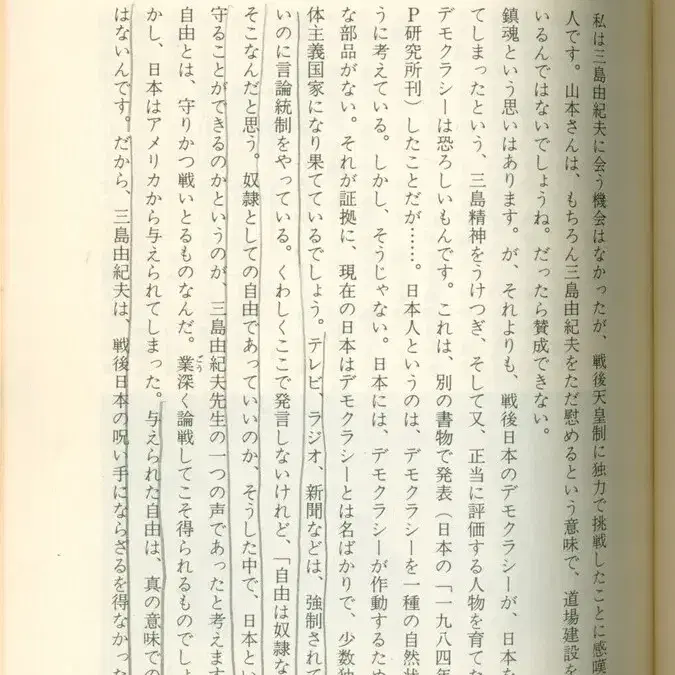 私は三島由紀夫に会う機会はなかったが、戦後天皇制に独力で挑戦したことに感嘆
人です。山本さんは、もちろん三島由紀夫をただ慰めるという意味で、道場建設を
いるんではないでしょうね。だったら賛成できない。
鎮魂という思いはあります。が、それよりも、戦後日本のデモクラシーが、日本を
てしまったという、三島精神をうけつぎ、そして又、正当に評価する人物を育てた
デモクラシーは恐ろしいもんです。これは、別の書物で発表（日本の「一九八四年
P研究所刊）したことだが……。日本人というのは、デモクラシーを一種の自然状
うに考えている。しかし、そうじゃない。日本には、デモクラシーが作動するため
な部品がない。それが証拠に、現在の日本はデモクラシーとは名ばかりで、少数独
体主義国家になり果てているでしょう。テレビ、ラジオ、新聞などは、強制されて
いのに言論統制をやっている。くわしくここで発言しないけれど、「自由は奴隷な
そこなんだと思う。奴隷としての自由であっていいのか、そうした中で、日本とい
守ることができるのかというのが、三島由紀夫先生の一つの声であったと考えます
自由とは、守りかつ戦いとるものなんだ。業深く論戦してこそ得られるものでしょ
かし、日本はアメリカから与えられてしまった。与えられた自由は、真の意味での
はないんです。だから、三島由紀夫は、戦後日本の呪い手にならざるを得なかった